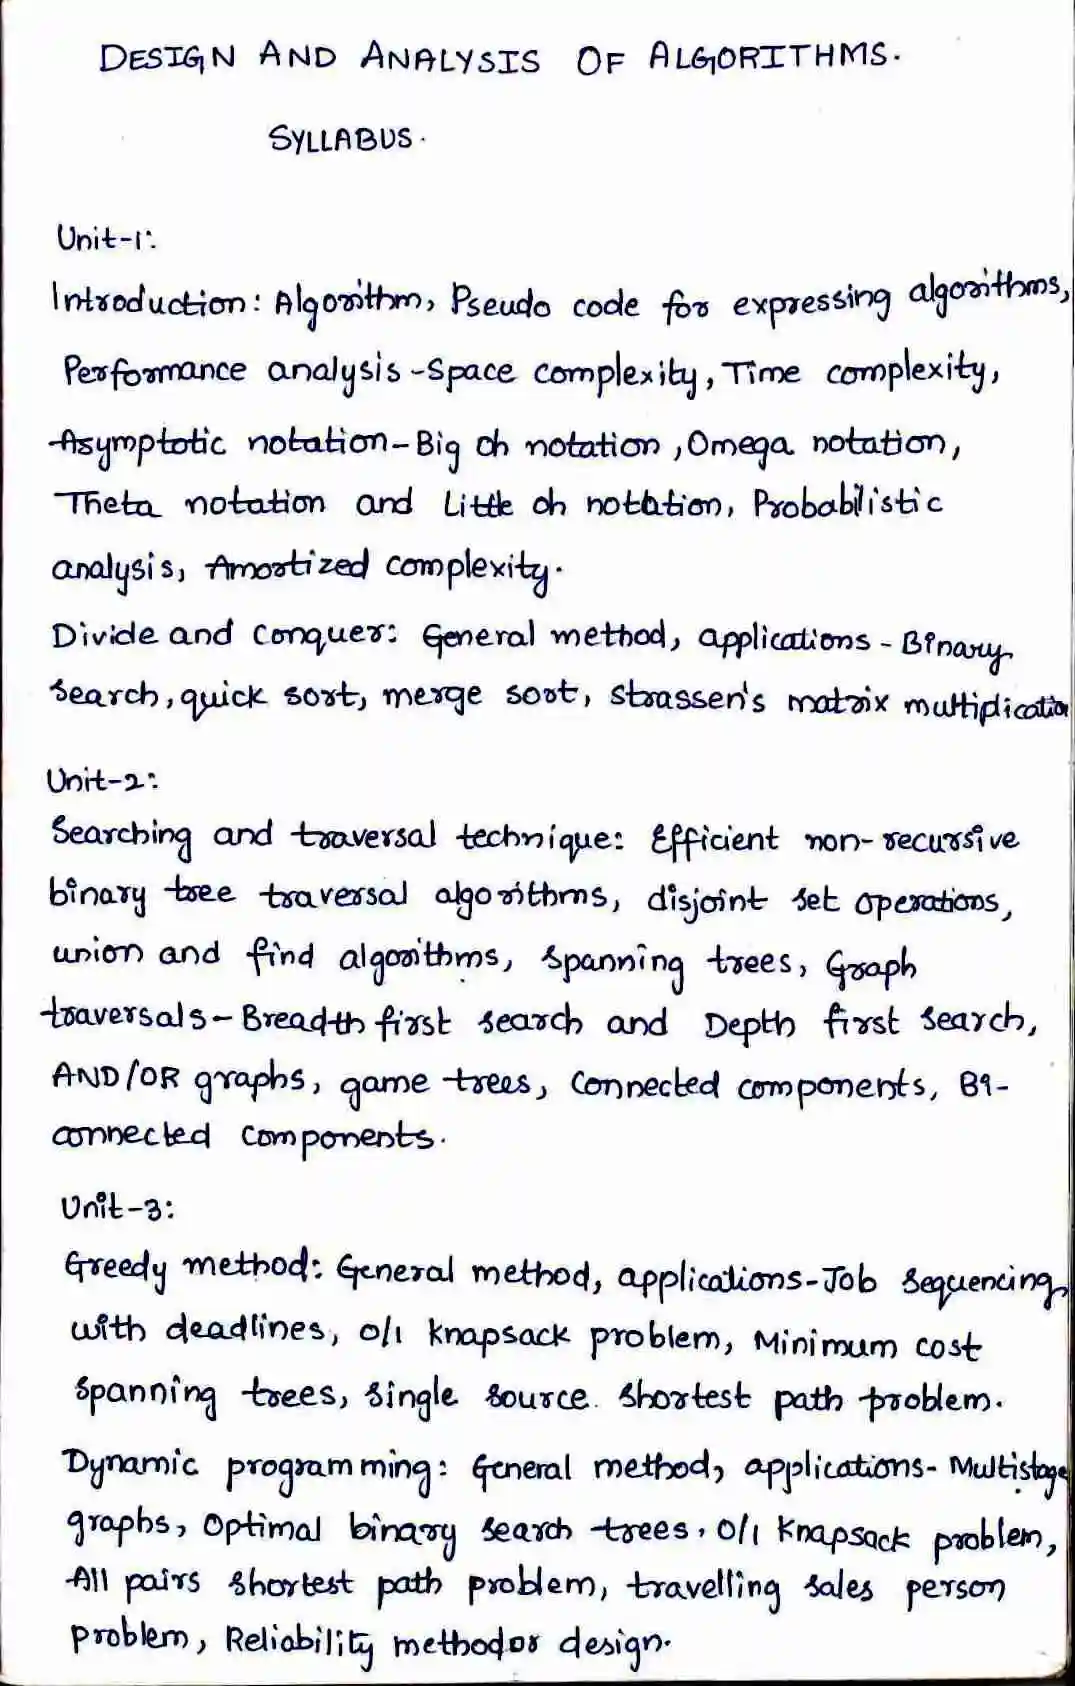 DESIGN AND ANALYSIS OF ALGORITHMS.
SYLLABUS.
Unit-1:
Introduction: Algorithm, Pseudo code for expressing algorithms,
Performance analysis -Space complexity, Time complexity,
Asymptotic notation-Big oh notation, Omega notation,
Theta notation and Little oh notation, Probabilistic
analysis, Amortized complexity.
Divide and conquer: General method, applications - Binary
search, quick sort, merge sort, Strassen's matrix multiplication
Unit-2:
Searching and traversal technique: Efficient non-recursive
binary tree traversal algorithms, disjoint set operations,
union and find algorithms, spanning trees, Graph
traversals-Breadth first search and Depth first search,
AND/OR graphs, game trees, Connected components, Bi-
connected components.
Unit-3:
Greedy method: General method, applications-Job sequencing
with deadlines, 0/1 knapsack problem, Minimum cost
spanning trees, single source shortest path problem.
Dynamic programming: General method, applications- Multistage
graphs, Optimal binary search trees, 0/1 knapsack problem,
All pairs shortest path problem, travelling sales person
problem, Reliability method or design.